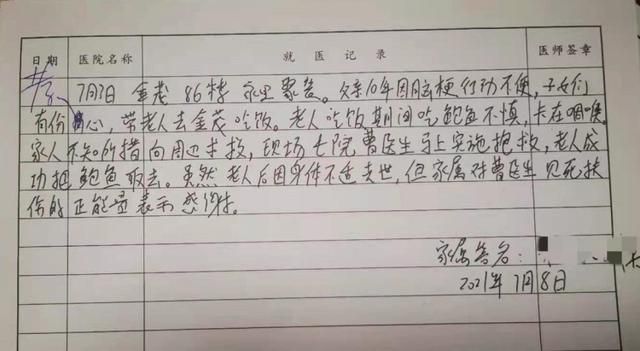 日期 医院名称 就医记录 医师签章
7月7日 金茂 86楼 家里聚签。父亲10年因脑梗行动不便,子女们
有份心,带老人去金茂吃饭。老人吃饭期间吃鲍鱼不慎,卡在咽喉
家人不知所措向周边求救,现场七院曹医生马上实施抢救,老人成
功把鲍鱼取去。虽然老人后因身体不适去世,但家属对曹医生见死扶
伤的正能量表示感谢。
家属签名:
2021年7月8日